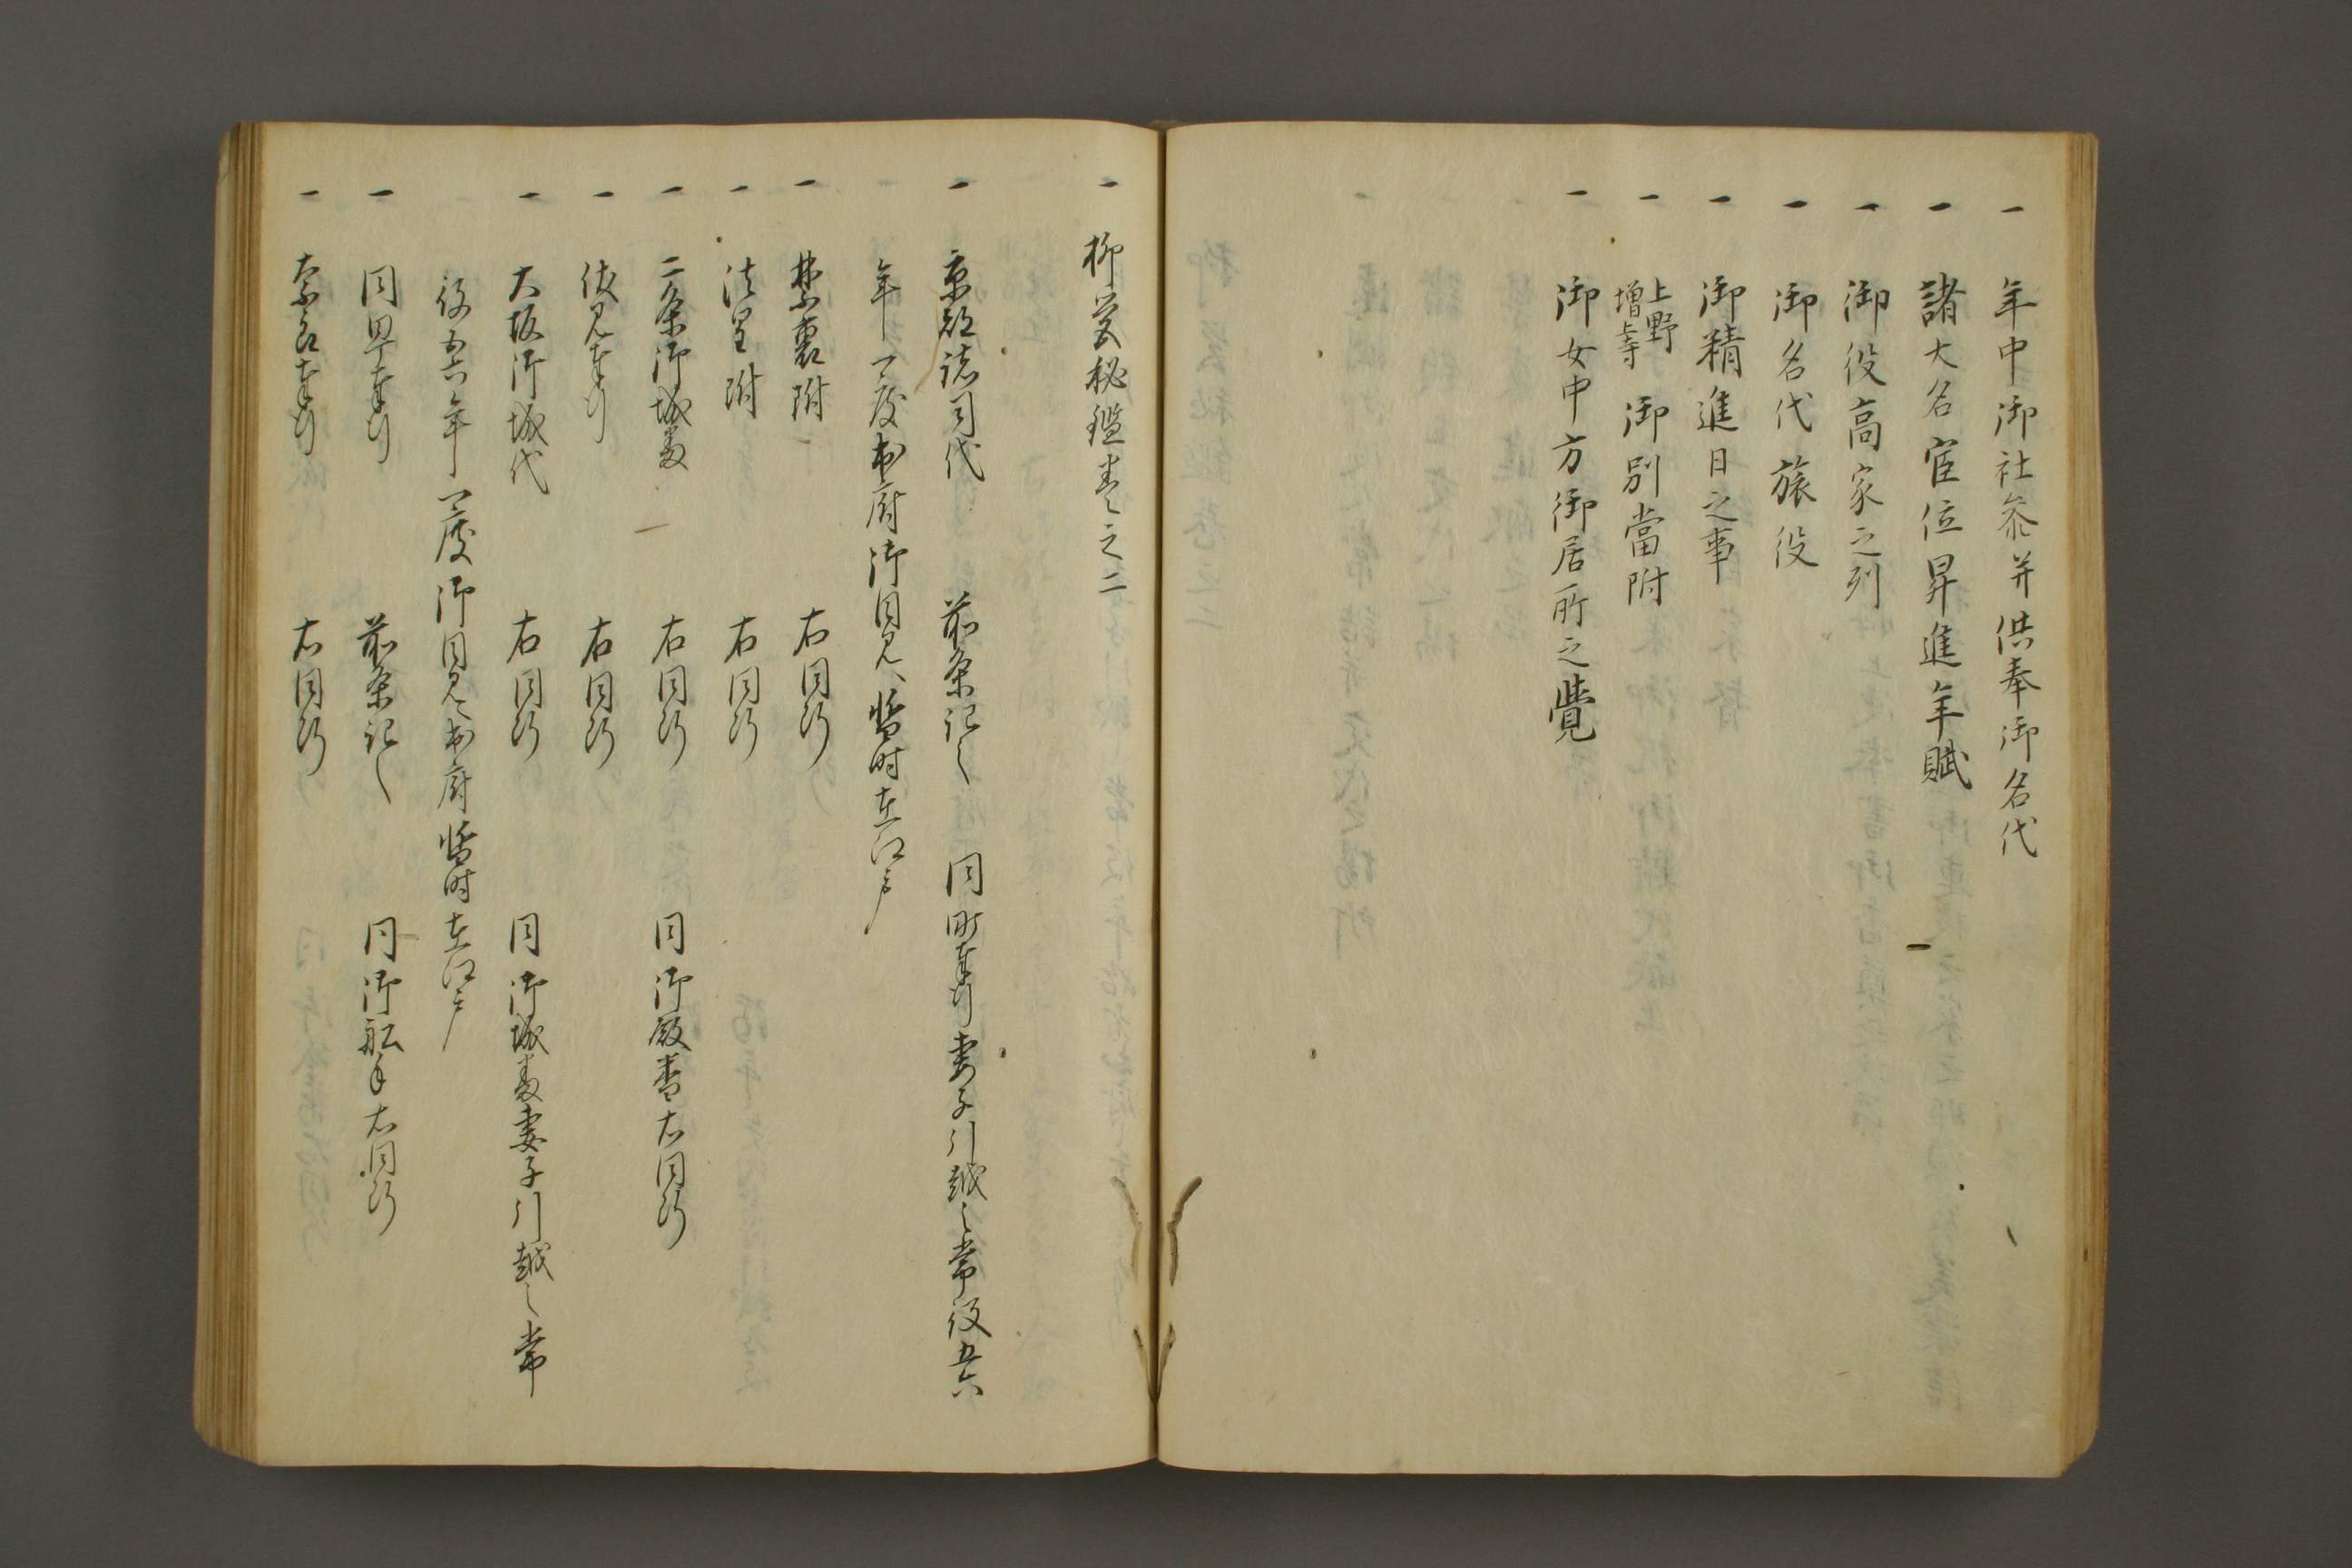 一 年中御社参并供奉御名代
一 諸大名官位昇進年賦
一 御役高家之列
一 御名代旅役
一 御精進日之事
一 上野増上寺 御別當附
一 御女中方御居所之覺
一 柳営秘鑑巻之二
一 京都諸司代 前条記之 同町奉行妻子引越之常役五六
年ニ一度出府御目見、暫時在江戸
一 禁裏附 右同断
一 法皇附 右同断
一 二条御城番 右同断 同御殿番右同断
一 伏見奉行 右同断
一 大坂御城代 右同断 同御城番妻子引越之常
役五六年ニ一度御目見出府暫時在江戸
一 同町奉行 前条記之 同御船手右同断
一 奈良奉行 右同断